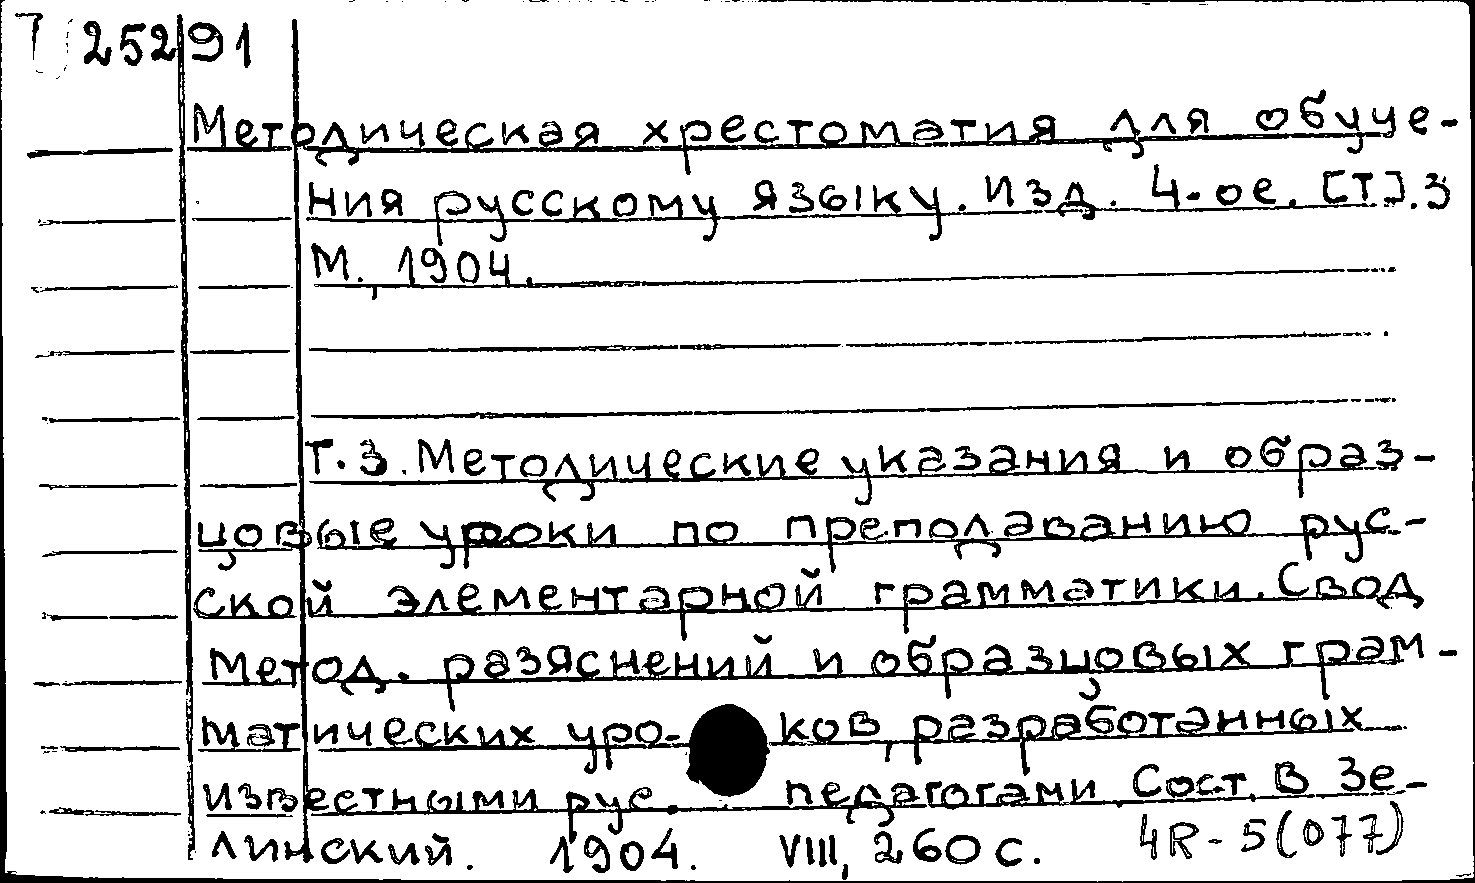 U 25291
Методическая хрестоматия для обуче-
ния русскому языку. Изд. 4-ое. [Т]. 3
М., 1904.
Т. 3. Методические указания и образ-
цовые уроки по преподаванию рус-
ской элементарной грамматики. Свод
метод. разяснений и образцовых грам-
матических уро- ков, разработанных
известными рус. педагогами. Сост. В. Зе-
линский. 1904. VIII, 260 с. 4R-5(077)